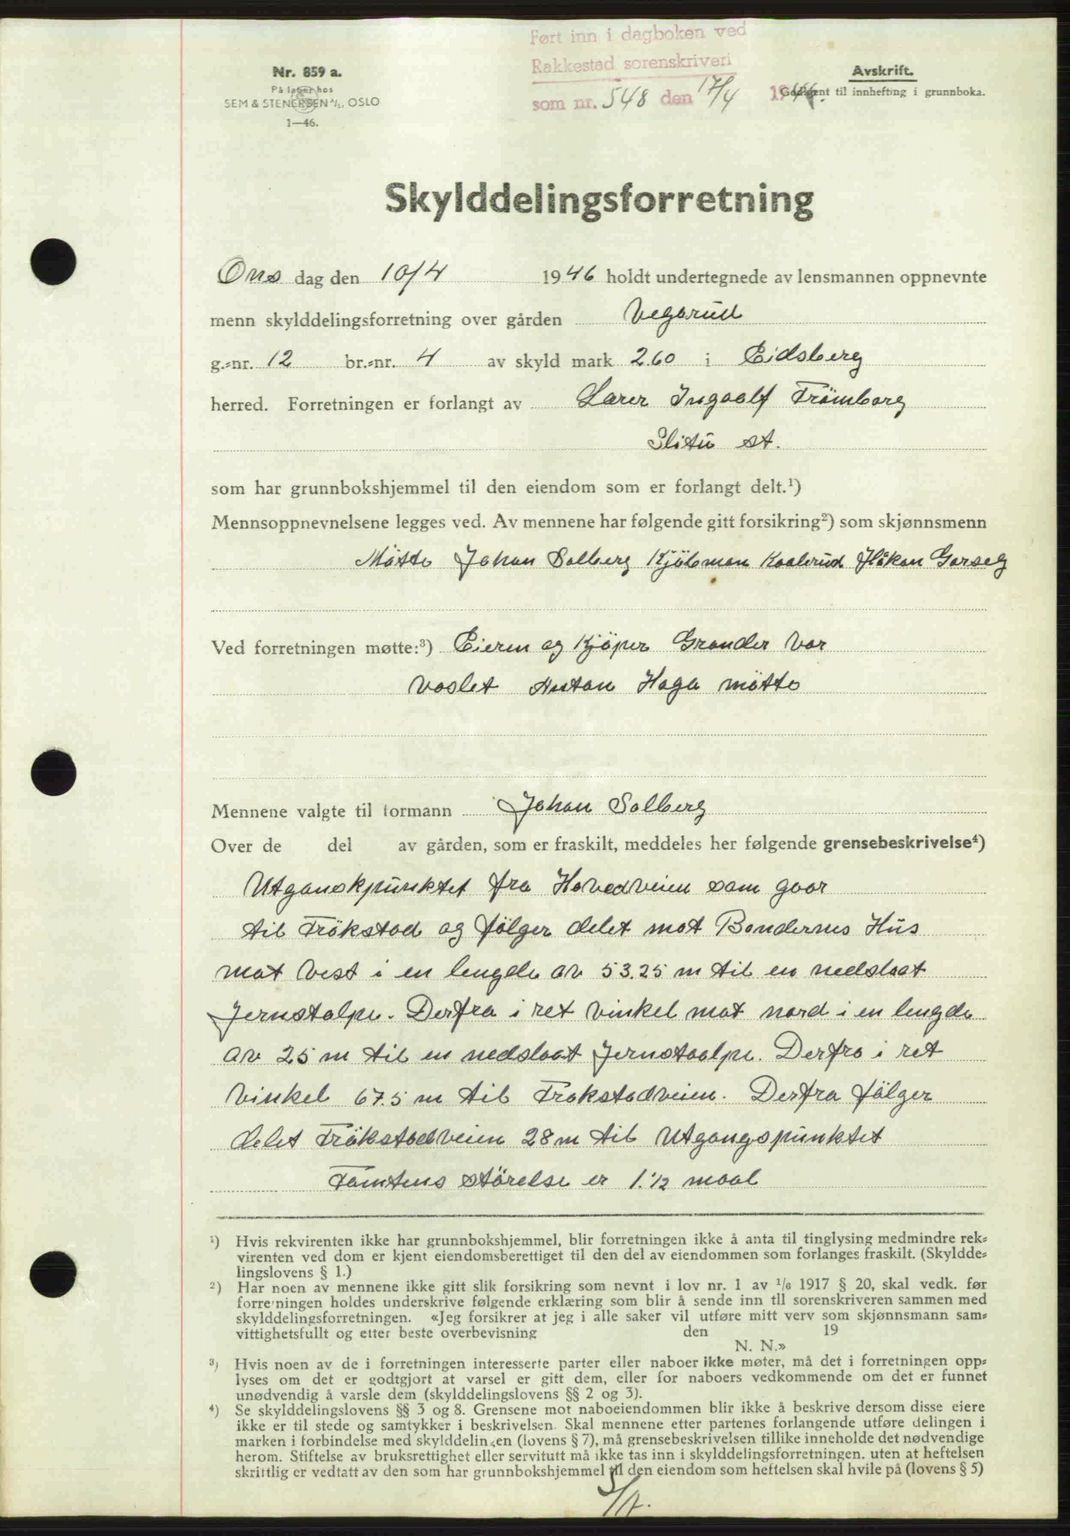 Ført inn i dagboken ved
Rakkestad sorenskriveri
som nr. 548 den 17/4 1946.
Nr. 859 a.
På lager hos
SEM & STENERSEN A/S, OSLO
1—46.
Avskrift.
Godkjent til innhefting i grunnboka.
Skylddelingsforretning
Ons dag den 10/4 1946 holdt undertegnede av lensmannen oppnevnte
menn skylddelingsforretning over gården Vegbrud
g.-nr. 12 br.-nr. 4 av skyld mark 2.60 i Eidsberg
herred. Forretningen er forlangt av Lærer Ingaalf Trömborg
Slitu st.
som har grunnbokshjemmel til den eiendom som er forlangt delt.¹)
Mennsoppnevnelsene legges ved. Av mennene har følgende gitt forsikring²) som skjønnsmenn
Møtte Johan Solberg Kaalerud Håkan Garseg
Ved forretningen møtte:³) Eieren og Kjöper Grander Var
Vaslet Anton Haga møtte
Mennene valgte til formann Johan Solberg
Over de del av gården, som er fraskilt, meddeles her følgende grensebeskrivelse⁴)
Utganskpunktet fra Hovedveien som gaar
til Trökstad og fölger delet mot Bondernes Hus
mot Vest i en lengde av 53.25 m til en nedslaat
Jernstolpe. Derfra i ret vinkel mot nord i en lengde
av 25 m til en nedslaat Jernstaalpe. Derfra i ret
Vinkel 67.5 m til Trøkstadveien. Derfra fölger
delet Trökstadveien 28 m til Utgangspunktet
Tomtens störelse er 1.½ maal
¹) Hvis rekvirenten ikke har grunnbokshjemmel, blir forretningen ikke å anta til tinglysing medmindre rek-
virenten ved dom er kjent eiendomsberettiget til den del av eiendommen som forlanges fraskilt. (Skyldde-
lingslovens § 1.)
²) Har noen av mennene ikke gitt slik forsikring som nevnt i lov nr. 1 av 1/6 1917 § 20, skal vedk. før
forretningen holdes underskrive følgende erklæring som blir å sende inn til sorenskriveren sammen med
skylddelingsforretningen. «Jeg forsikrer at jeg i alle saker vil utføre mitt verv som skjønnsmann sam-
vittighetsfullt og etter beste overbevisning den 19
N. N.»
³) Hvis noen av de i forretningen interesserte parter eller naboer ikke møter, må det i forretningen opp-
lyses om det er godtgjort at varsel er gitt dem, eller for naboers vedkommende om det er funnet
unødvendig å varsle dem (skylddelingslovens §§ 2 og 3).
⁴) Se skylddelingslovens §§ 3 og 8. Grensene mot naboeiendommen blir ikke å beskrive dersom disse eiere
ikke er til stede og samtykker i beskrivelsen. Skal mennene etter partenes forlangende utføre delingen i
marken i forbindelse med skylddelingen (lovens § 7), må grensebeskrivelsen tillike inneholde det nødvendige
herom. Stiftelse av bruksrettighet eller servitutt må ikke tas inn i skylddelingsforretningen, uten at heftelsen
skriftlig er vedtatt av den som har grunnbokshjemmel til den eiendom som heftelsen skal hvile på (lovens § 5)